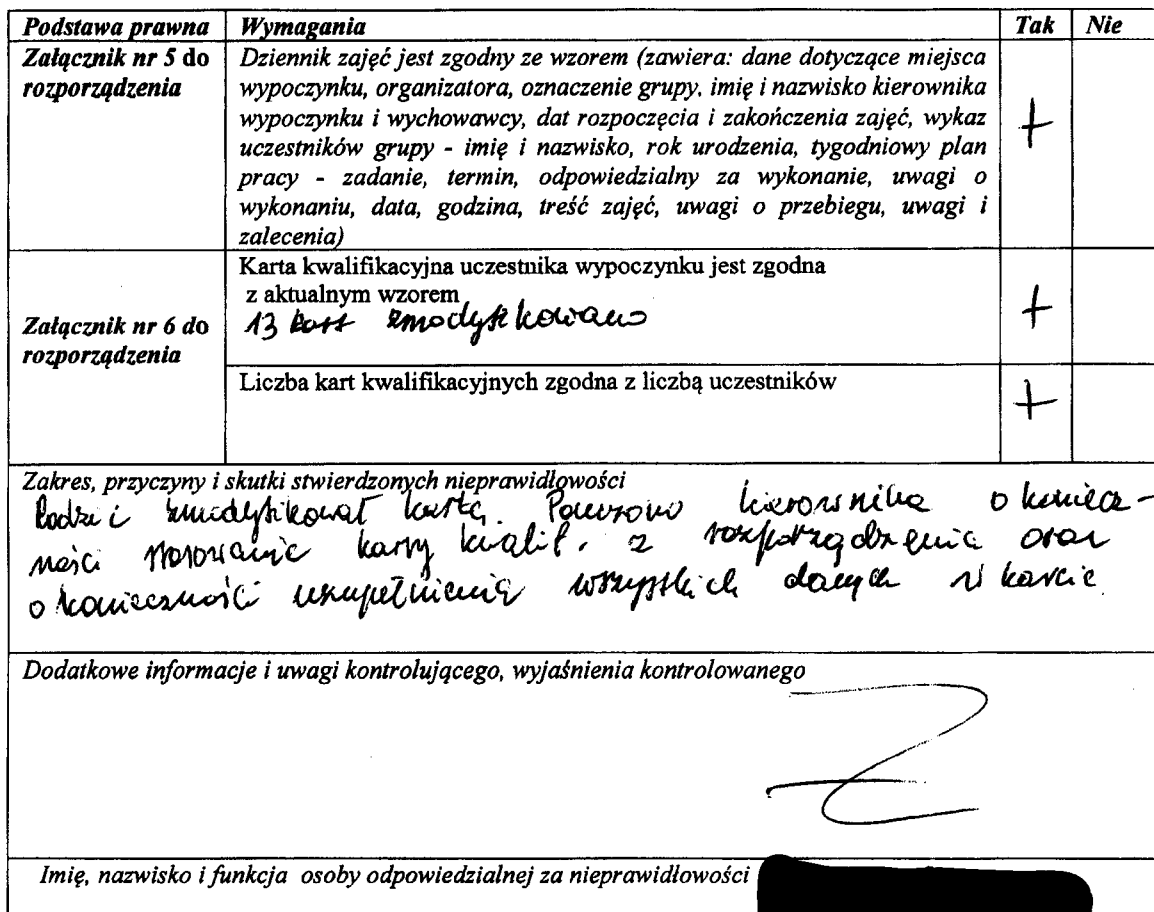 Podstawa prawna Wymagania Tak Nie
Załącznik nr 5 do
rozporządzenia
Dziennik zajęć jest zgodny ze wzorem (zawiera: dane dotyczące miejsca
wypoczynku, organizatora, oznaczenie grupy, imię i nazwisko kierownika
wypoczynku i wychowawcy, dat rozpoczęcia i zakończenia zajęć, wykaz
uczestników grupy - imię i nazwisko, rok urodzenia, tygodniowy plan
pracy - zadanie, termin, odpowiedzialny za wykonanie, uwagi o
wykonaniu, data, godzina, treść zajęć, uwagi o przebiegu, uwagi i
zalecenia)
+
Załącznik nr 6 do
rozporządzenia
Karta kwalifikacyjna uczestnika wypoczynku jest zgodna
z aktualnym wzorem
13 kart zmodyfikowano
+
Liczba kart kwalifikacyjnych zgodna z liczbą uczestników
+
Zakres, przyczyny i skutki stwierdzonych nieprawidłowości
zmodyfikował kartę. kierownika o koniecz-
ności stosowania karty kwalif. z rozporządzenia oraz
o konieczności uzupełnienia wszystkich danych w karcie
Dodatkowe informacje i uwagi kontrolującego, wyjaśnienia kontrolowanego
Imię, nazwisko i funkcja osoby odpowiedzialnej za nieprawidłowości